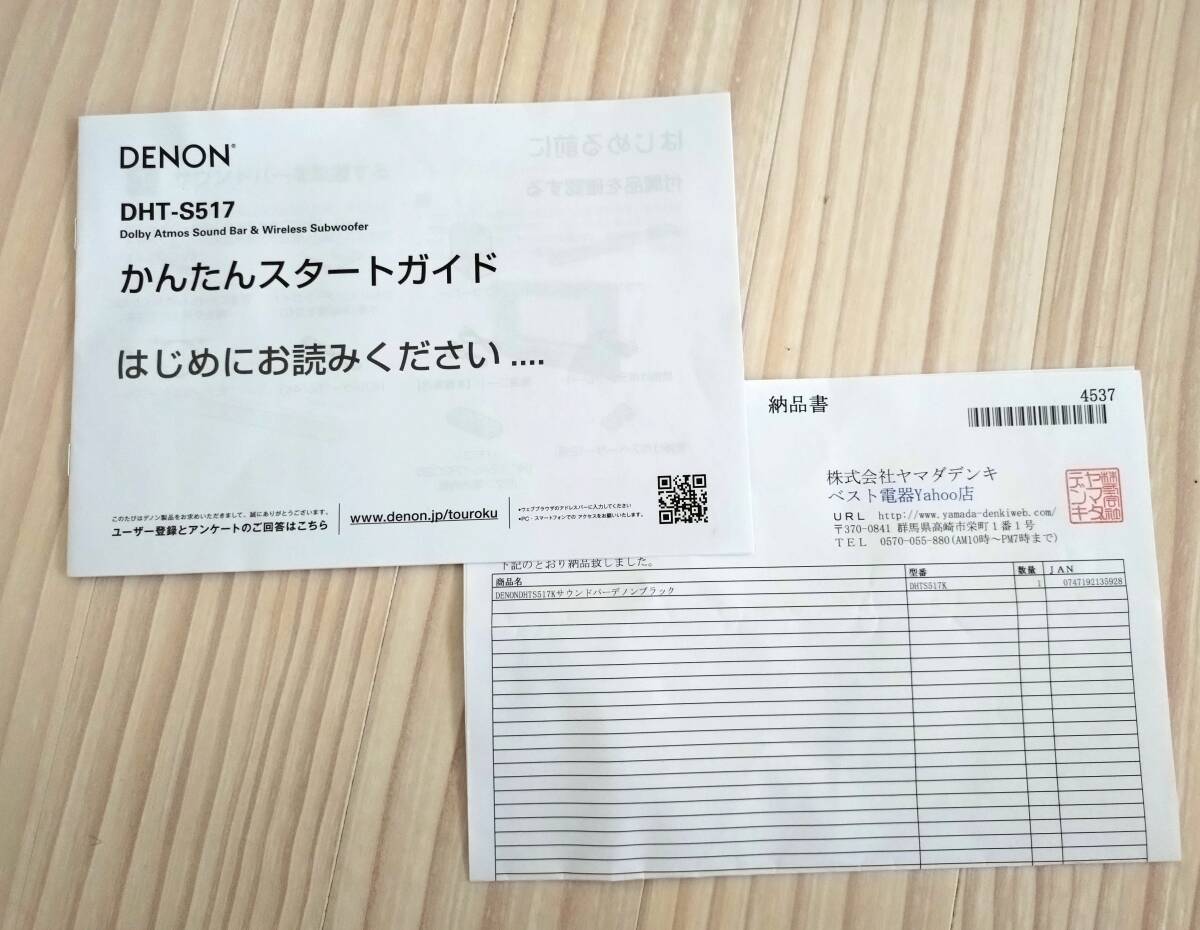 DENON®
DHT-S517
Dolby Atmos Sound Bar & Wireless Subwoofer
かんたんスタートガイド
はじめにお読みください....
このたびはデノン製品をお求めいただきまして、誠にありがとうございます。
ユーザー登録とアンケートのご回答はこちら
www.denon.jp/touroku
•ウェブブラウザのアドレスバーに入力してください
•PC・スマートフォンでの アクセスをお願いいたします。
はじめる前に
付属品を確認する
納品書
4537
株式会社ヤマダデンキ
ベスト電器Yahoo店
URL http://www.yamada-denkiweb.com/
〒370-0841 群馬県高崎市栄町1番1号
TEL 0570-055-880(AM10時～PM7時まで)
株式会社ヤマダデンキ
下記のとおり納品致しました。
商品名 型番 数量 JAN
DENONDHTS517Kサウンドバーデノンブラック DHTS517K 1 0747192135928